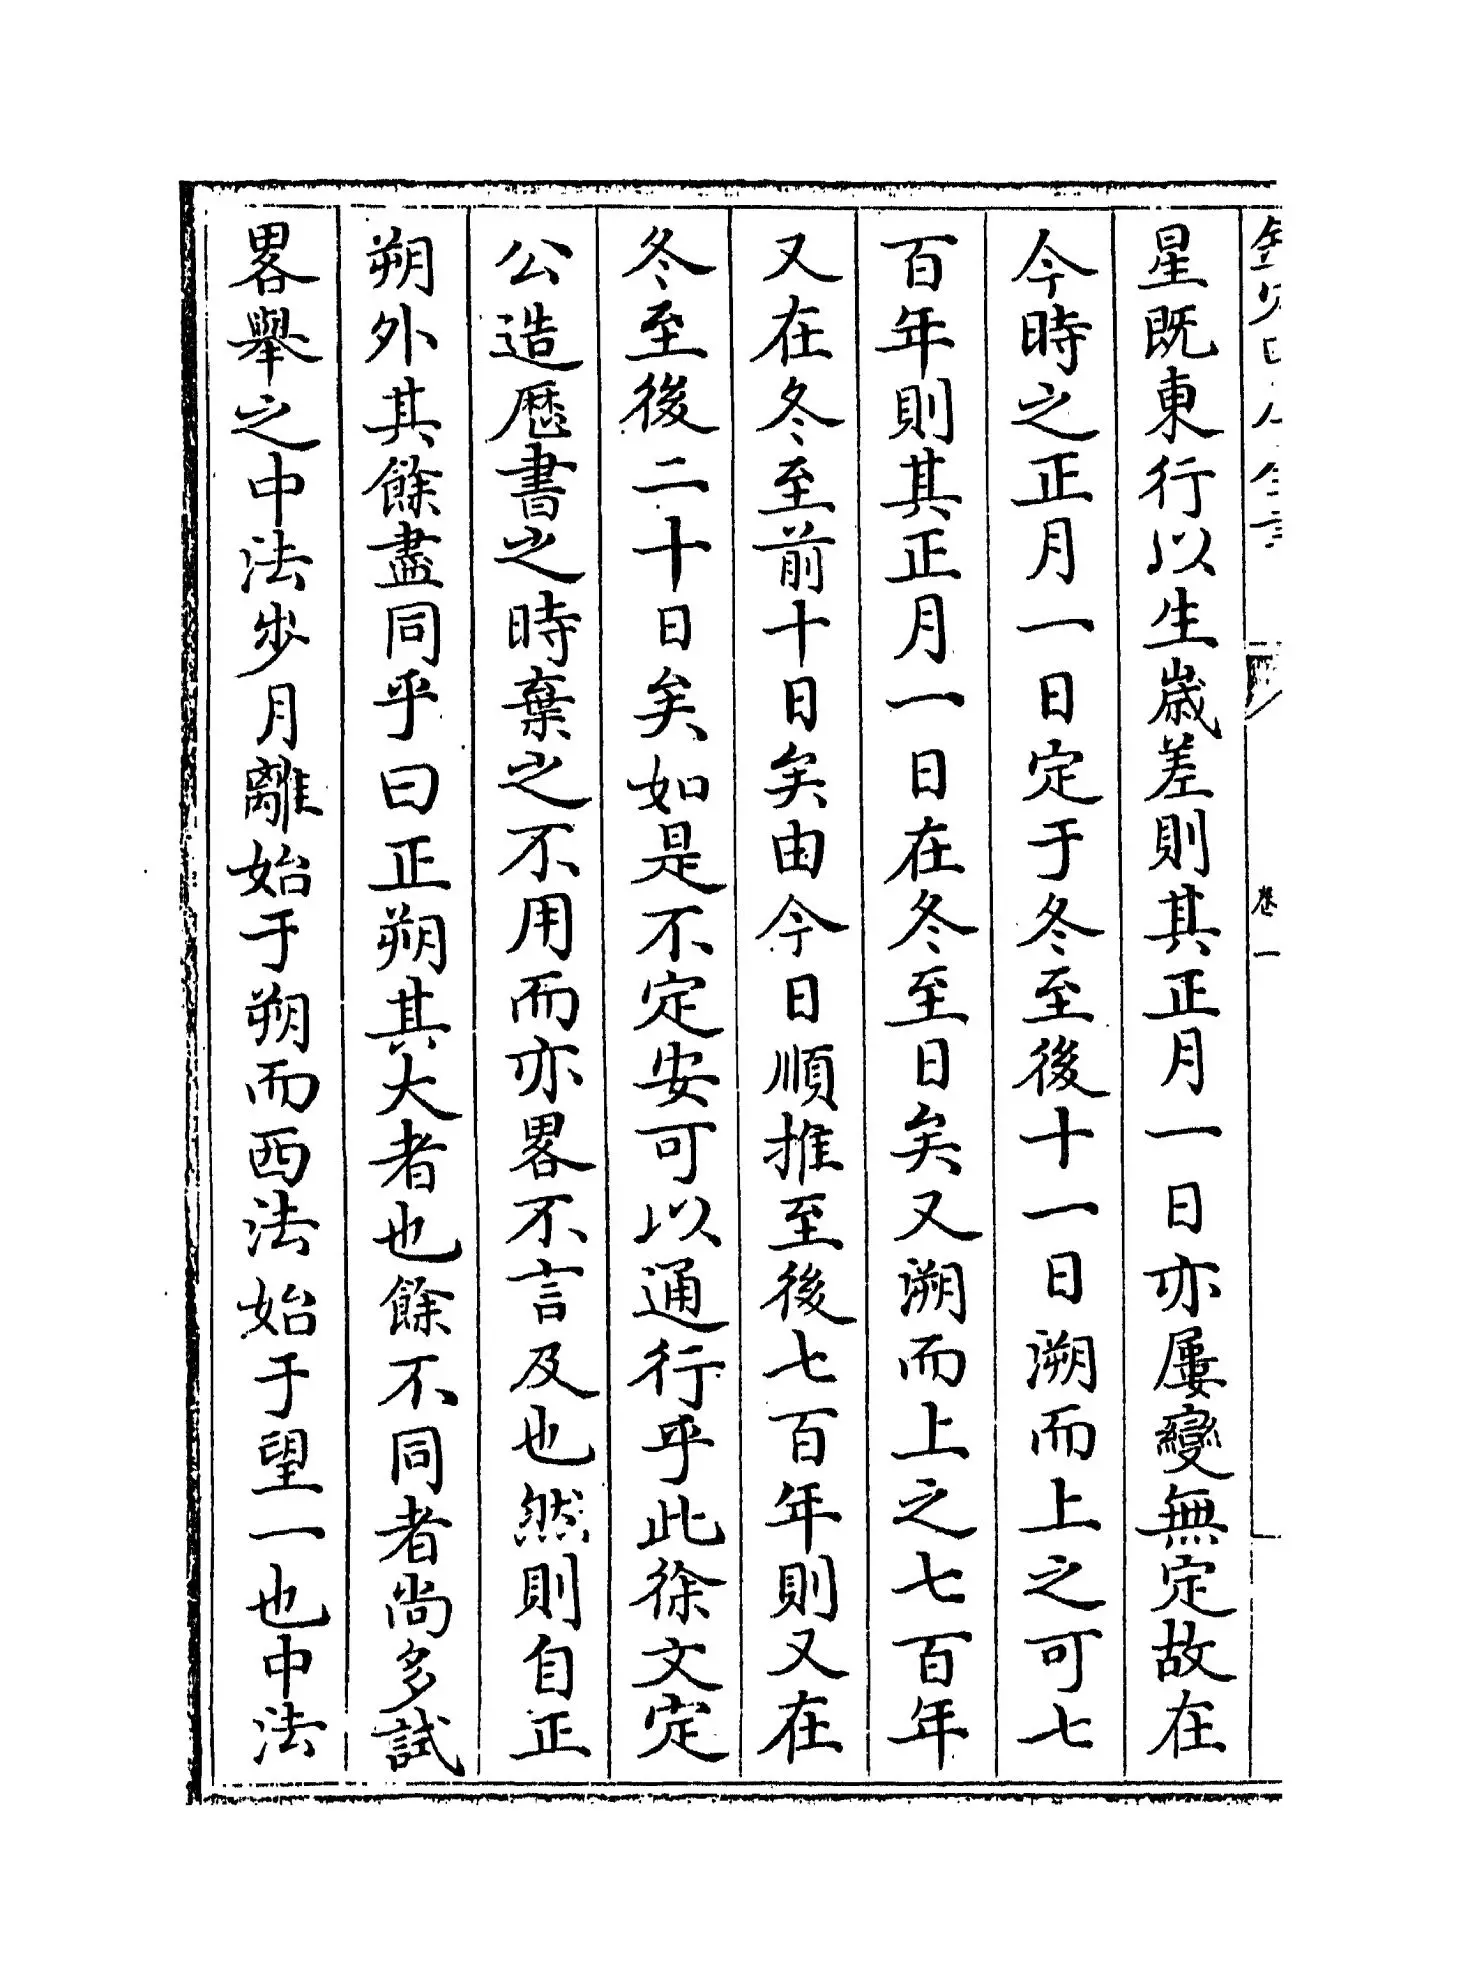 星既東行以生歲差則其正月一日亦屢變無定故在
今時之正月一日定于冬至後十一日溯而上之可七
百年則其正月一日在冬至日矣又溯而上之七百年
又在冬至前十日矣由今日順推至後七百年則又在
冬至後二十日矣如是不定安可以通行乎此徐文定
公造厯書之時棄之不用而亦畧不言及也然則自正
朔外其餘盡同乎曰正朔其大者也餘不同者尚多試
畧舉之中法步月離始于朔而西法始于望一也中法
卷一